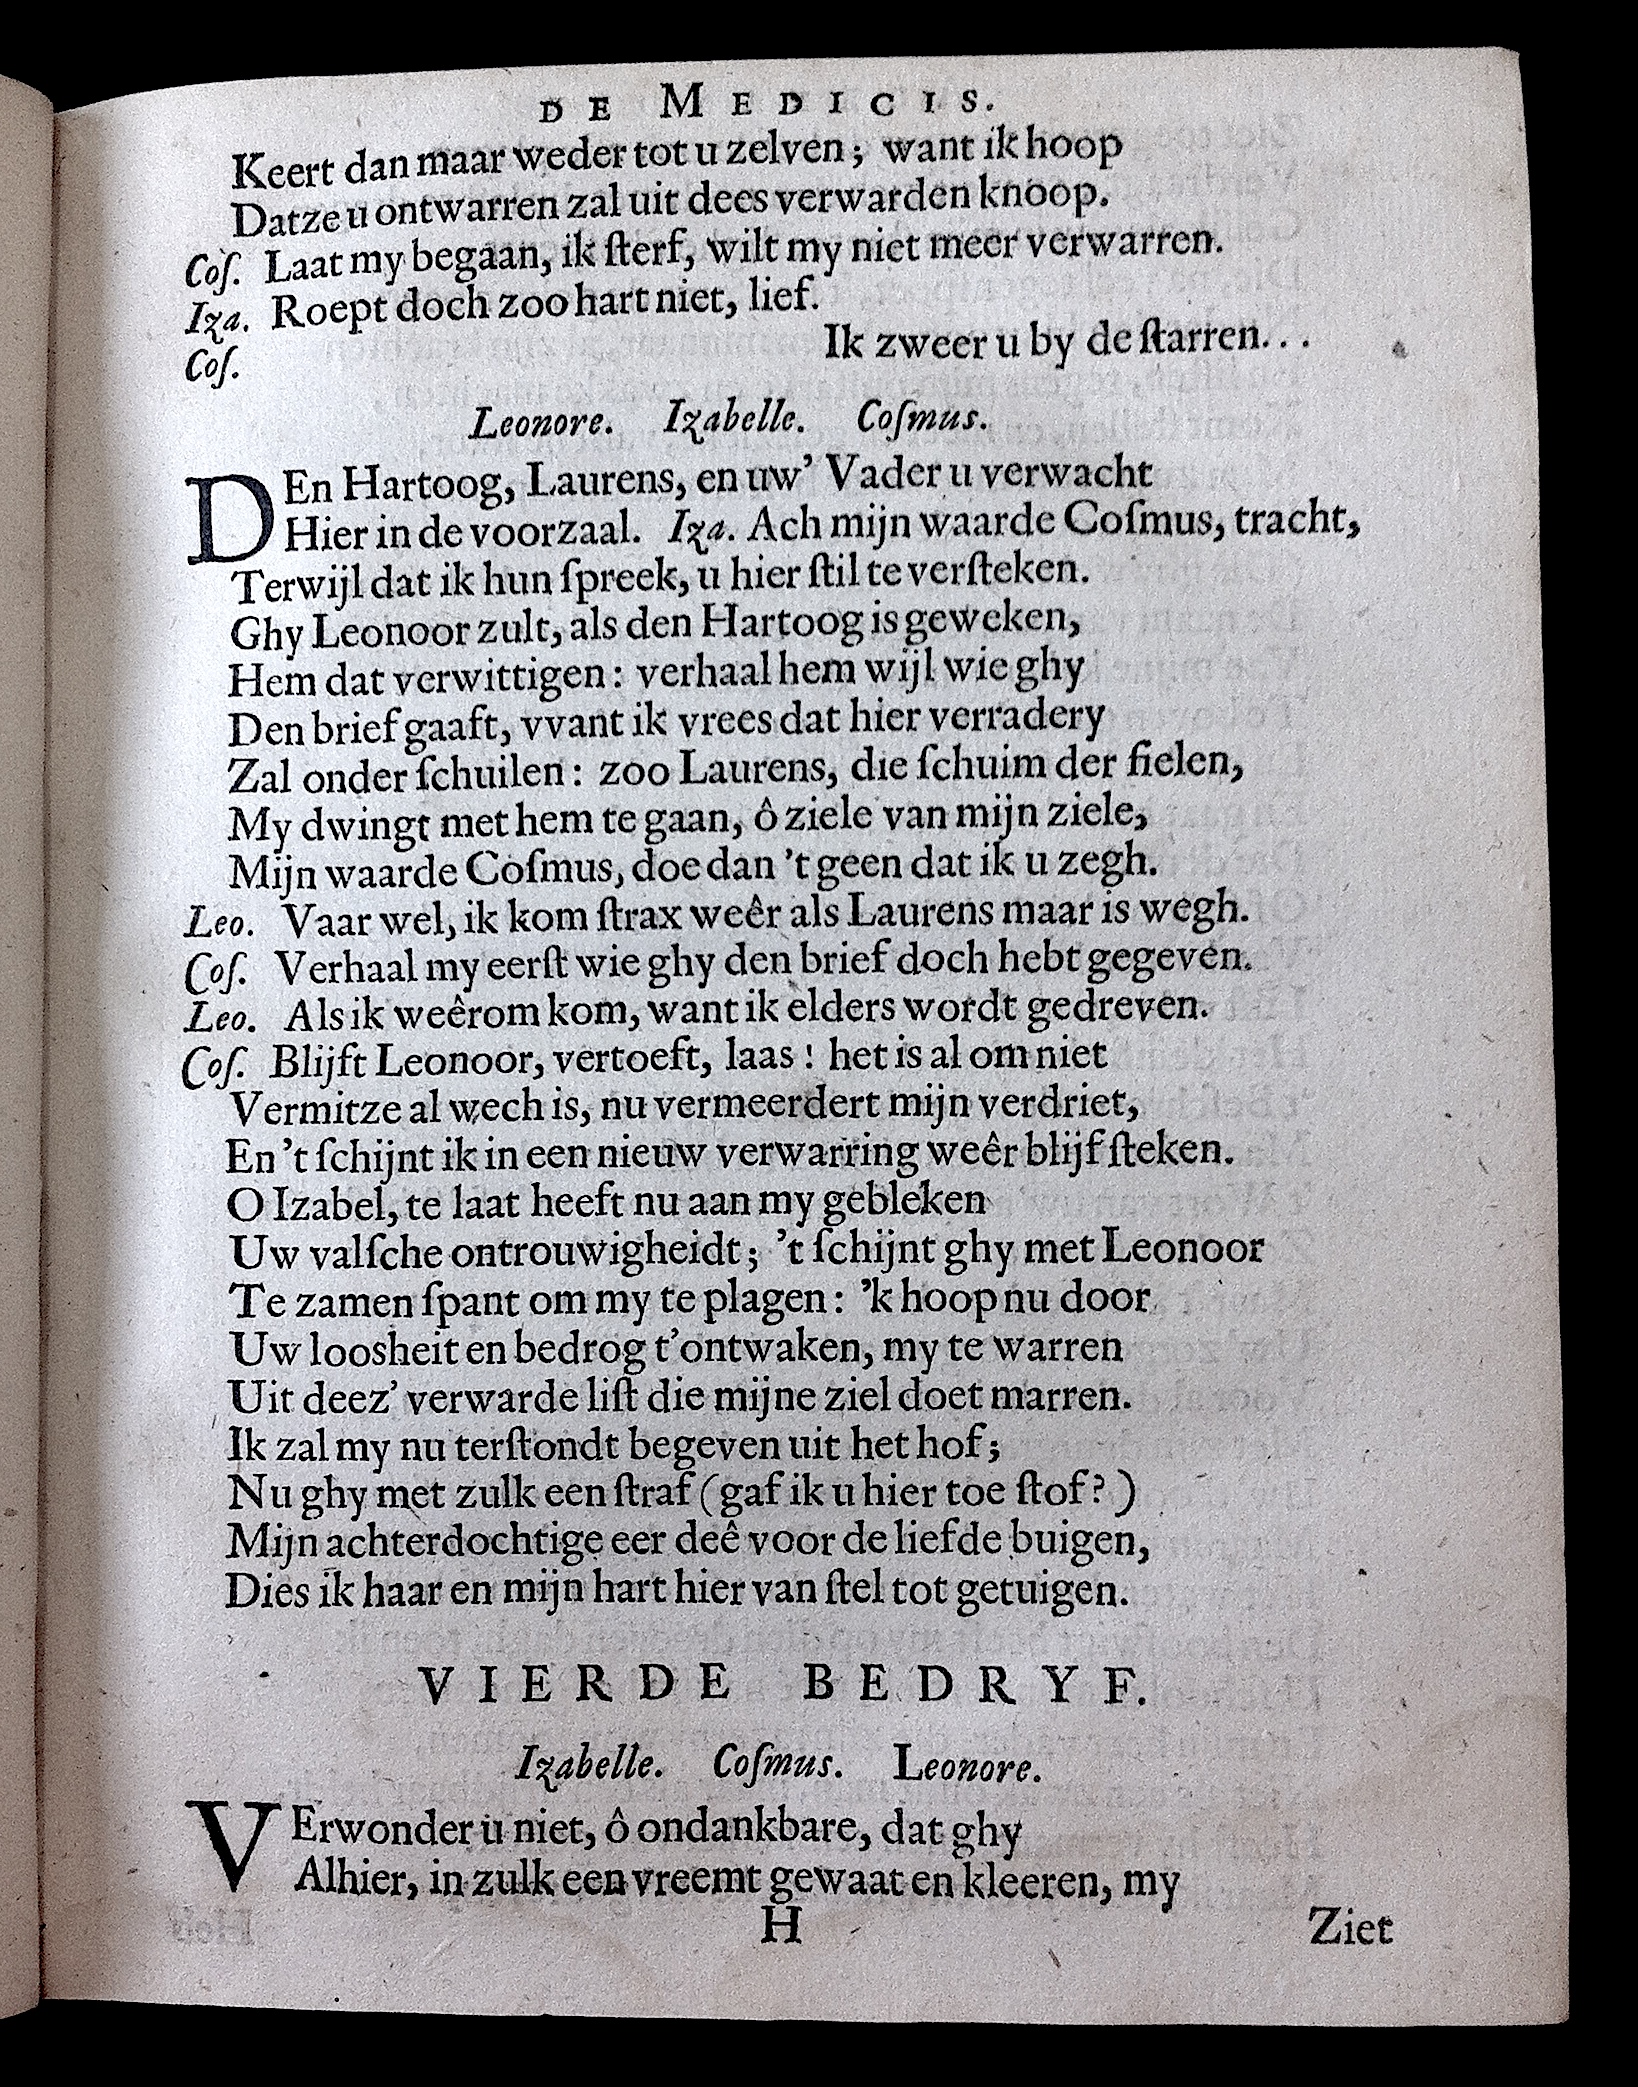 DE MEDICIS.
Keert dan maar weder tot u zelven; want ik hoop
Datze u ontwarren zal uit dees verwarden knoop.
Coſ. Laat my begaan, ik ſterf, wilt my niet meer verwarren.
Iza. Roept doch zoo hart niet, lief.
Coſ. Ik zweer u by de ſtarren...
Leonore. Izabelle. Coſmus.
DEn Hartoog, Laurens, en uw' Vader u verwacht
Hier in de voorzaal. Iza. Ach mijn waarde Coſmus, tracht,
Terwijl dat ik hun ſpreek, u hier ſtil te verſteken.
Ghy Leonoor zult, als den Hartoog is geweken,
Hem dat verwittigen: verhaal hem wijl wie ghy
Den brief gaaft, vvant ik vrees dat hier verradery
Zal onder ſchuilen: zoo Laurens, die ſchuim der fielen,
My dwingt met hem te gaan, ô ziele van mijn ziele,
Mijn waarde Coſmus, doe dan 't geen dat ik u zegh.
Leo. Vaar wel, ik kom ſtrax weêr als Laurens maar is wegh.
Coſ. Verhaal my eerſt wie ghy den brief doch hebt gegeven.
Leo. Als ik weêrom kom, want ik elders wordt gedreven.
Coſ. Blijft Leonoor, vertoeft, laas! het is al om niet
Vermitze al wech is, nu vermeerdert mijn verdriet,
En 't ſchijnt ik in een nieuw verwarring weêr blijf ſteken.
O Izabel, te laat heeft nu aan my gebleken
Uw valſche ontrouwigheidt; 't ſchijnt ghy met Leonoor
Te zamen ſpant om my te plagen: 'k hoop nu door
Uw loosheit en bedrog t'ontwaken, my te warren
Uit deez' verwarde liſt die mijne ziel doet marren.
Ik zal my nu terſtondt begeven uit het hof;
Nu ghy met zulk een ſtraf (gaf ik u hier toe ſtof?)
Mijn achterdochtige eer deê voor de liefde buigen,
Dies ik haar en mijn hart hier van ſtel tot getuigen.
VIERDE BEDRYF.
Izabelle. Coſmus. Leonore.
VErwonder u niet, ô ondankbare, dat ghy
Alhier, in zulk een vreemt gewaat en kleeren, my
H Ziet